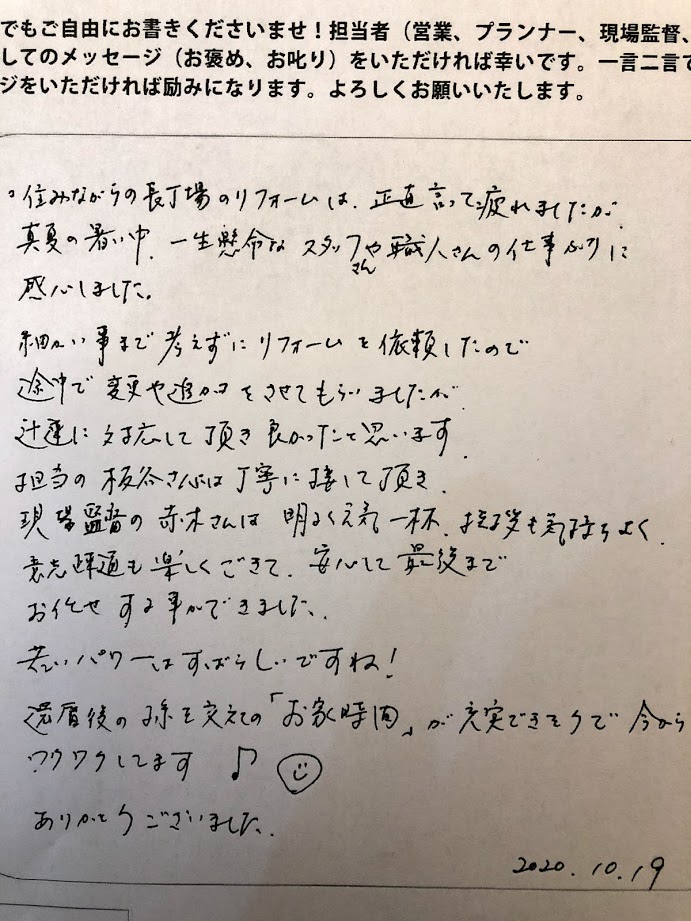 でもご自由にお書きくださいませ！担当者（営業、プランナー、現場監督、
してのメッセージ（お褒め、お叱り）をいただければ幸いです。一言二言で
ジをいただければ励みになります。よろしくお願いいたします。
。住みながらの長丁場のリフォームは、正直言って疲れましたが、
真夏の暑い中、一生懸命なスタッフさんや職人さんの仕事ぶりに
感心しました。
細かい事まで考えずにリフォームを依頼したので
途中で変更や追加をさせてもらいましたが
迅速に対応して頂き良かったと思います。
担当の板谷さんは丁寧に接して頂き、
現場監督の赤木さんは明るく元気一杯、挨拶も気持ちよく、
意志疎通も楽しくできて、安心して最後まで
お任せする事ができました。
若いパワーはすばらしいですね！
還暦後の孫を交えての「お家時間」が充実できそうで今から
ワクワクしてます ♪ ☺
ありがとうございました。
2020.10.19